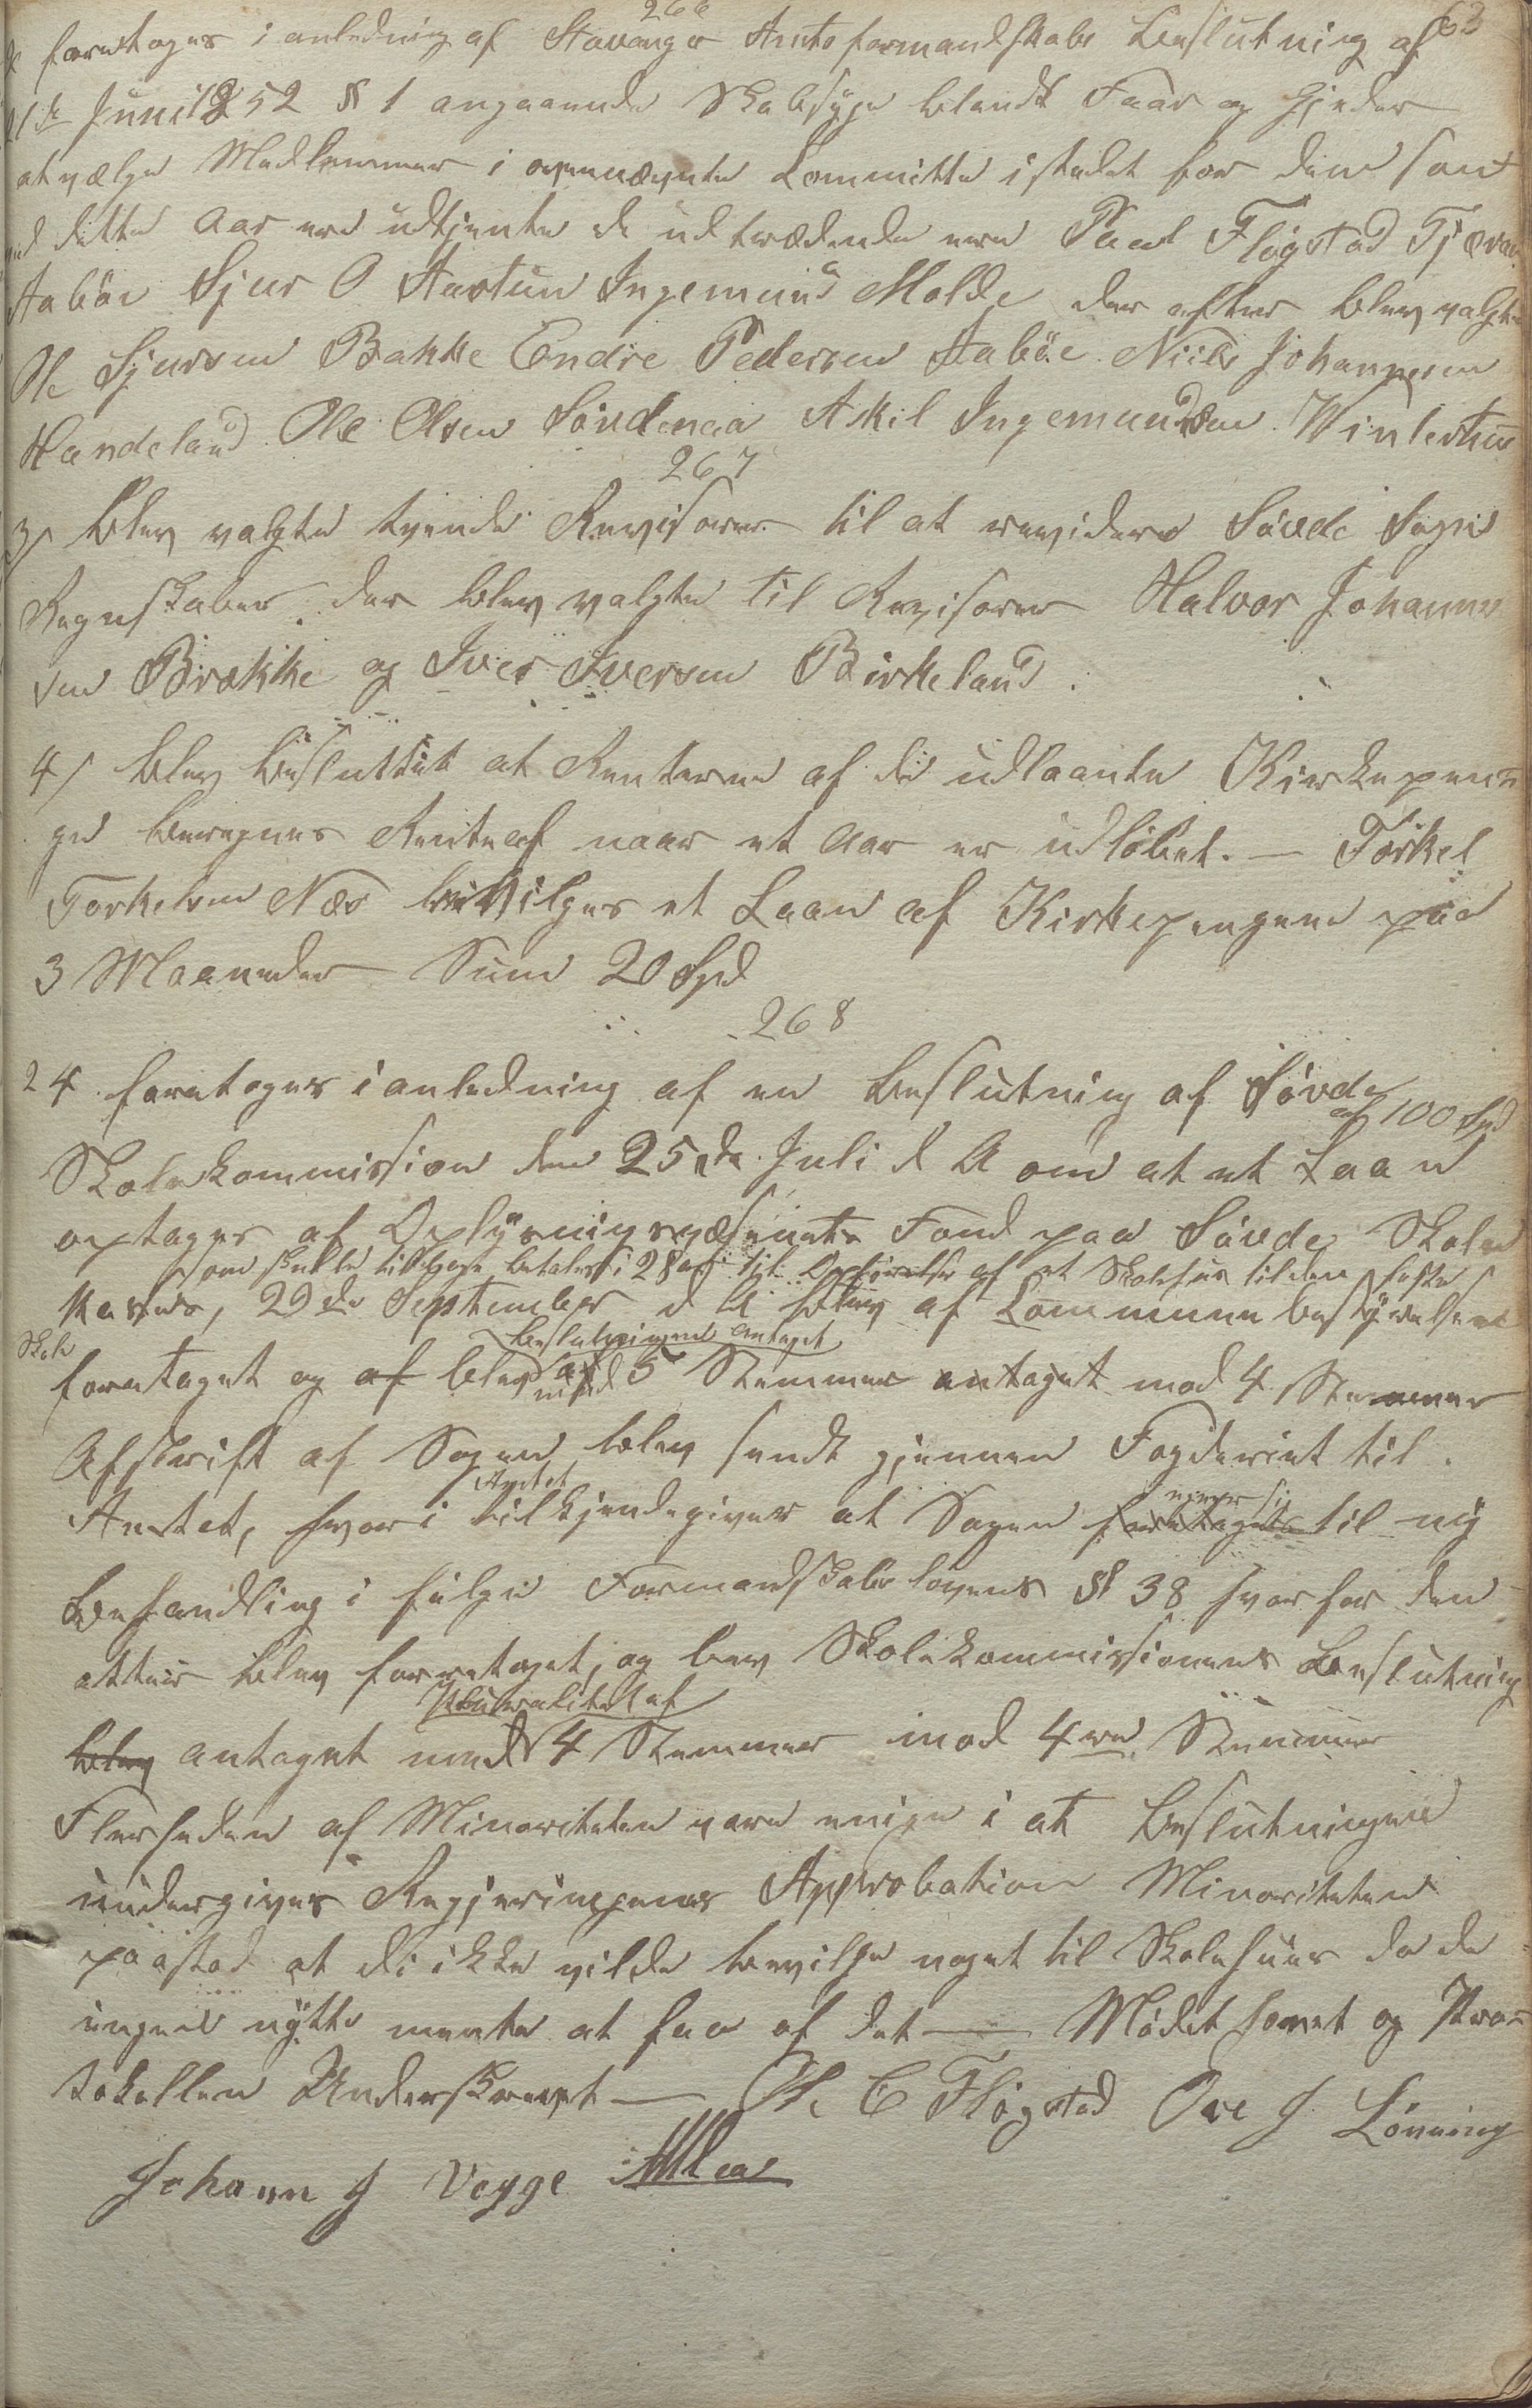 266
63
foretoges i anledning af Stavanger Amtsformandskabs Beslutning af
21de Juni 1852 § 1 angaaende Skabsyge blandt Faar og Gjeder
at vælge Medlemmer i ovennævnte Committe istedet for dem som
ved dette Aar ere udtjente de udtrædende ere Paal Fløgstad Tjæran
Aabøe Sjur O Aartun Ingemund Molde der efter blev valgte
Ole Sjursen Bakke Endre Pedersen Aabøe Niels Johannesen
Handeland Ole Olsen Søndenaa Askil Ingemundsen Vinterhus
267
3/ blev valgte tvende Revisorer til at revidere Søvde Sogns
Regnskaber der blev valgte til Revisorer Halvor Johannes
sen Brække og Iver Iversen Birkeland.
4/ blev besluttet at Renterne af de udlaante Kirkepen-
ge beregnes Rente af naar et Aar er udløbet. — Torkel
Torkelsen Næs bevilges et Laan af Kirkepengene paa
3 Maaneder Sum 20 Spd
268
24 foretoges i anledning af en Beslutning af Søvde
af 100 Spd
Skolekommission den 25de Juli d A om at et Laan
optages af Oplysningsvæsenets Fond paa Søvde Skole
som skulle tilbage betales i 28 aar til Opførelse af et Skolehus til den faste
Skole
Kasse, 29de September d A blev af Communebestyrelsen
Beslutningen antaget
foretaget og af blev med 5 Stemmer antaget mod 4 Stemmer
Afskrift af Sagen blev sendt gjennem Fogderiet til
Amtet
Amtet, hvori tilkjendegiver at Sagen foretages til ny
Behandling i følge Formandskabslovens § 38 hvorfor den
atter blev foretaget, og blev Skolekommissionens Beslutning
Pluralitet af
blev antaget med 4 Stemmer mod 4re Stemmer
Flerheden af Minoriteten vare enige i at Beslutningen
undergives Regjeringens Approbation Minoriteten
paastod at de ikke vilde bevilge noget til Skolehuus da de
ingen nytte mente at faa af det — Mødet hævet og Pro-
tokollen Underskrevet — Ole C Fløgstad Ove J. Lønning
Johann J Vegge